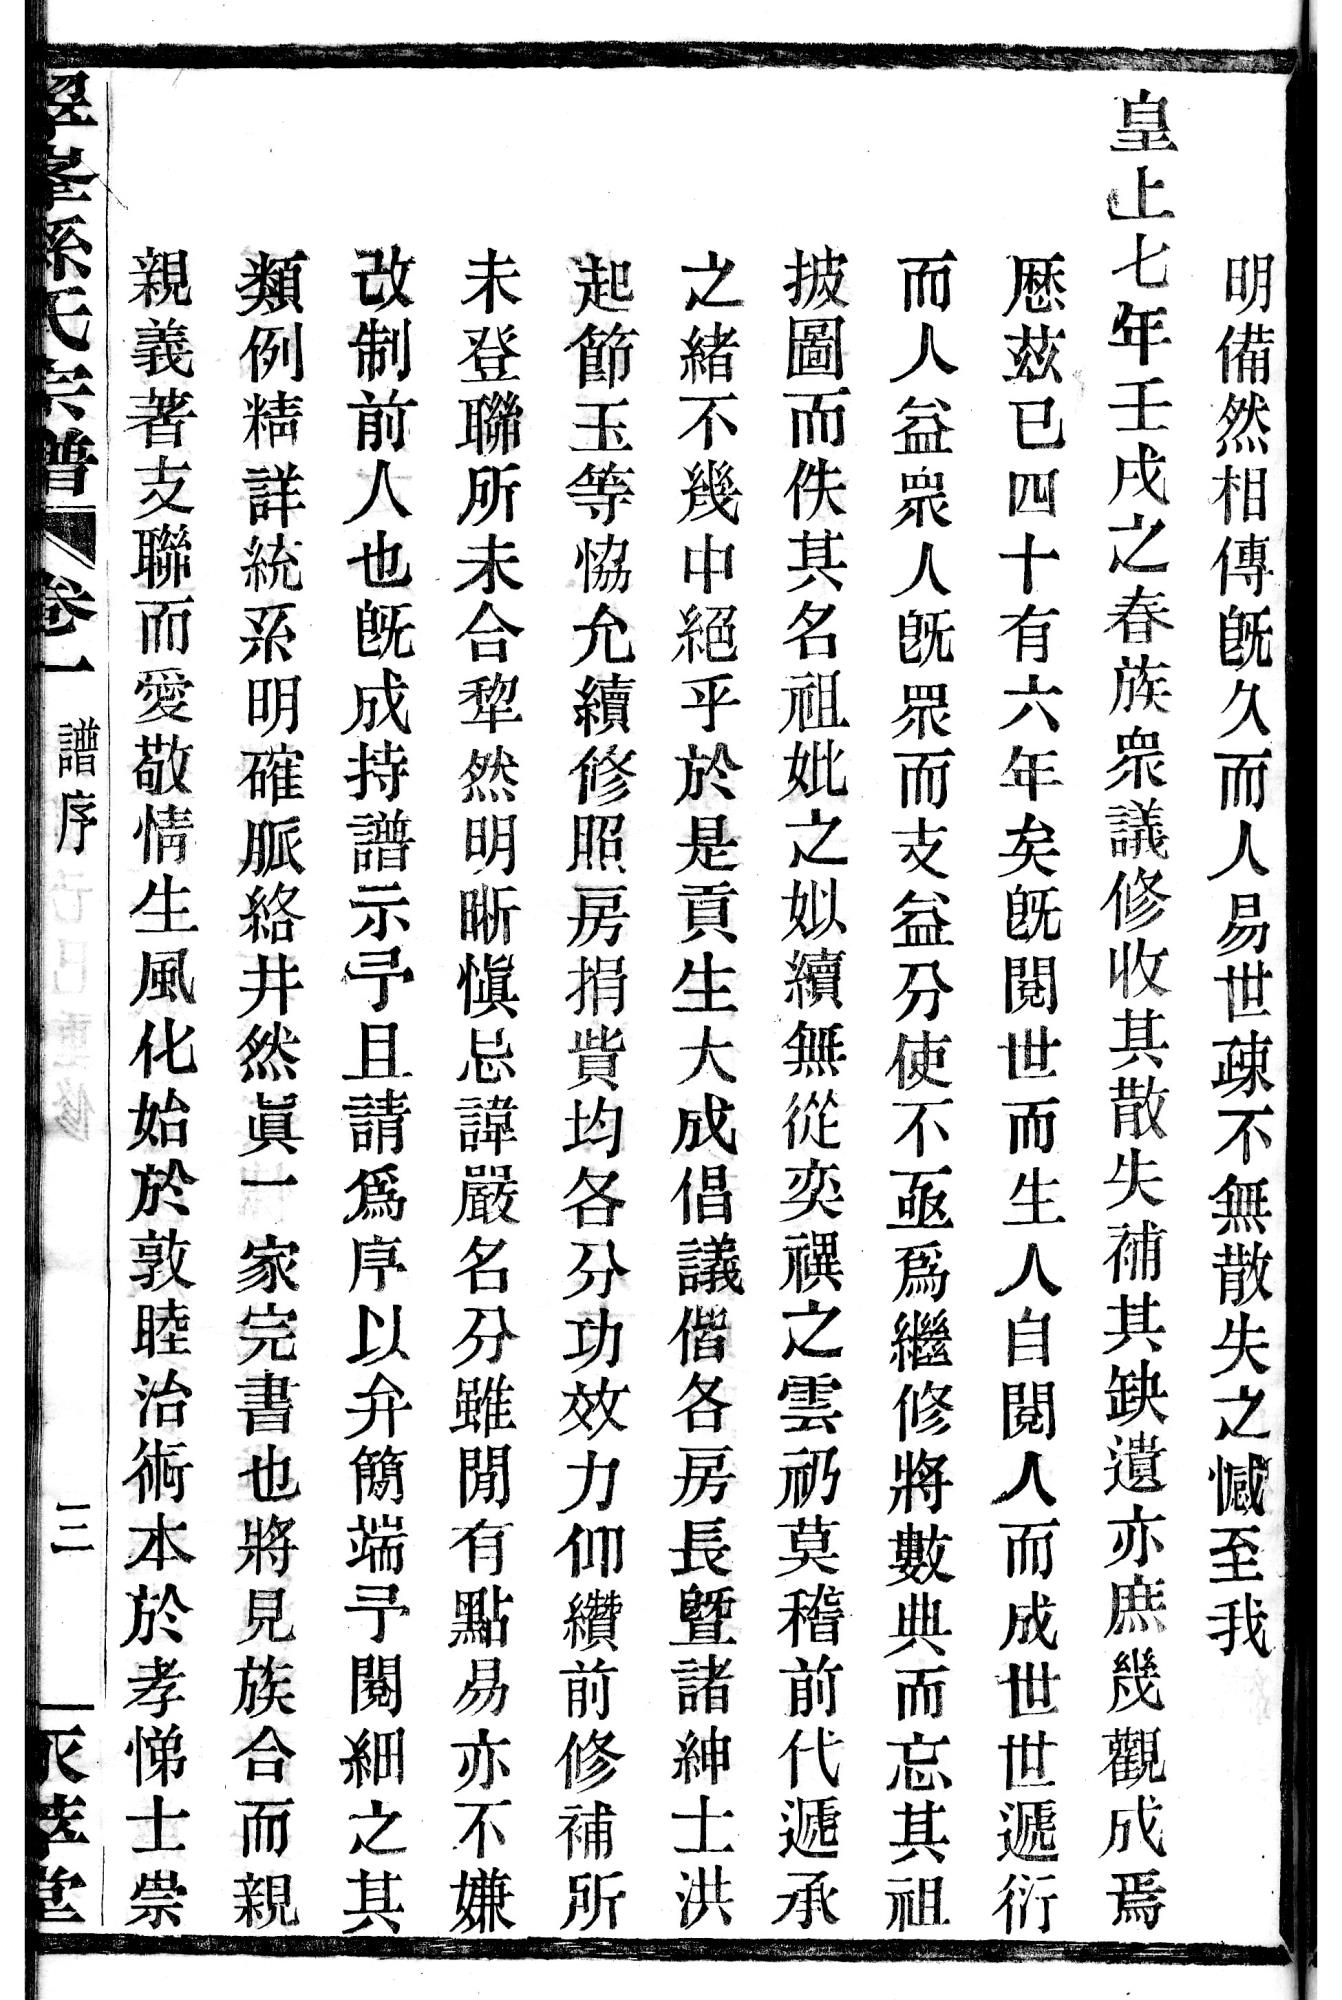 明備然相傳旣久而人易世疎不無散失之憾至我
皇上七年壬戌之春族衆議修收其散失補其缺遺亦庶幾觀成焉
歷茲已四十有六年矣旣閱世而生人自閱人而成世世遞衍
而人益衆人旣眾而支益分使不亟爲繼修將數典而忘其祖
披圖而佚其名祖妣之姒續無從奕禩之雲礽莫稽前代遞承
之緒不幾中絕乎於是貢生大成倡議偕各房長曁諸紳士洪
起節玉等恊允續修照房捐貲均各分功效力仰纘前修補所
未登聯所未合犂然明晰愼忌諱嚴名分雖閒有點易亦不嫌
改制前人也旣成持譜示予且請爲序以弁簡端予閱細之其
類例精詳統系明確脈絡井然眞一家完書也將見族合而親
親義著支聯而愛敬情生風化始於敦睦治術本於孝悌士崇
翠峯孫氏宗譜 卷一 譜序 三 堂